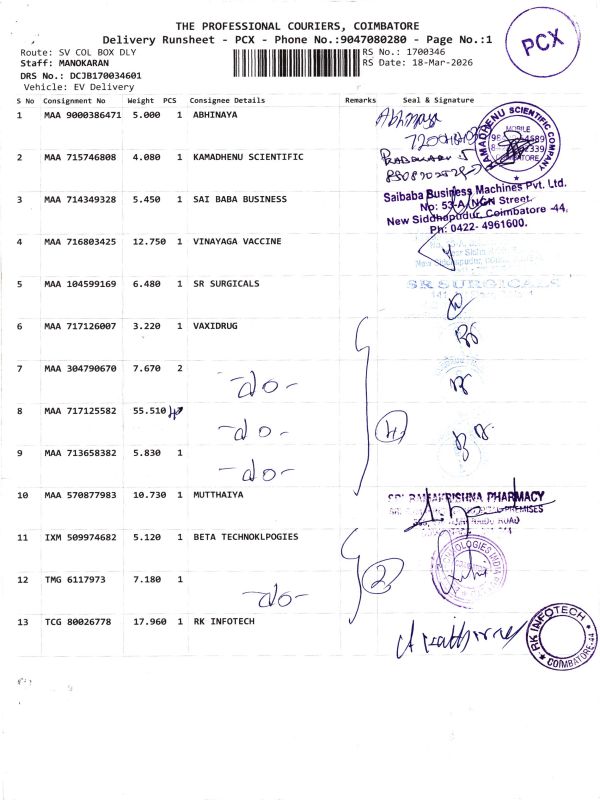 THE PROFESSIONAL COURIERS, COIMBATORE
Delivery Runsheet - PCX - Phone No.:9047080280 - Page No.:1
PCX
Route: SV COL BOX DLY
RS No.: 1700346
Staff: MANOKARAN
RS Date: 18-Mar-2026
DRS No.: DCJB170034601
Vehicle: EV Delivery
S No Consignment No Weight PCS Consignee Details Remarks Seal & Signature
1 MAA 9000386471 5.000 1 ABHINAYA
Abhinaya
KAMADHENU SCIENTIFIC COMPANY
MOBILE
COIMBATORE
2 MAA 715746808 4.080 1 KAMADHENU SCIENTIFIC
3 MAA 714349328 5.450 1 SAI BABA BUSINESS
Saibaba Business Machines Pvt. Ltd.
No: 53-A, NGN Street,
New Siddhapudur, Coimbatore -44.
Ph: 0422- 4961600.
4 MAA 716803425 12.750 1 VINAYAGA VACCINE
5 MAA 104599169 6.480 1 SR SURGICALS
SR SURGICALS
6 MAA 717126007 3.220 1 VAXIDRUG
7 MAA 304790670 7.670 2
-do-
8 MAA 717125582 55.510 4
-do-
4
9 MAA 713658382 5.830 1
-do-
10 MAA 570877983 10.730 1 MUTTHAIYA
SRI RAMAKRISHNA PHARMACY
PREMISES
ROAD
11 IXM 509974682 5.120 1 BETA TECHNOKLPOGIES
2
12 TMG 6117973 7.180 1
-do-
13 TCG 80026778 17.960 1 RK INFOTECH
RK INFOTECH
COIMBATORE-44